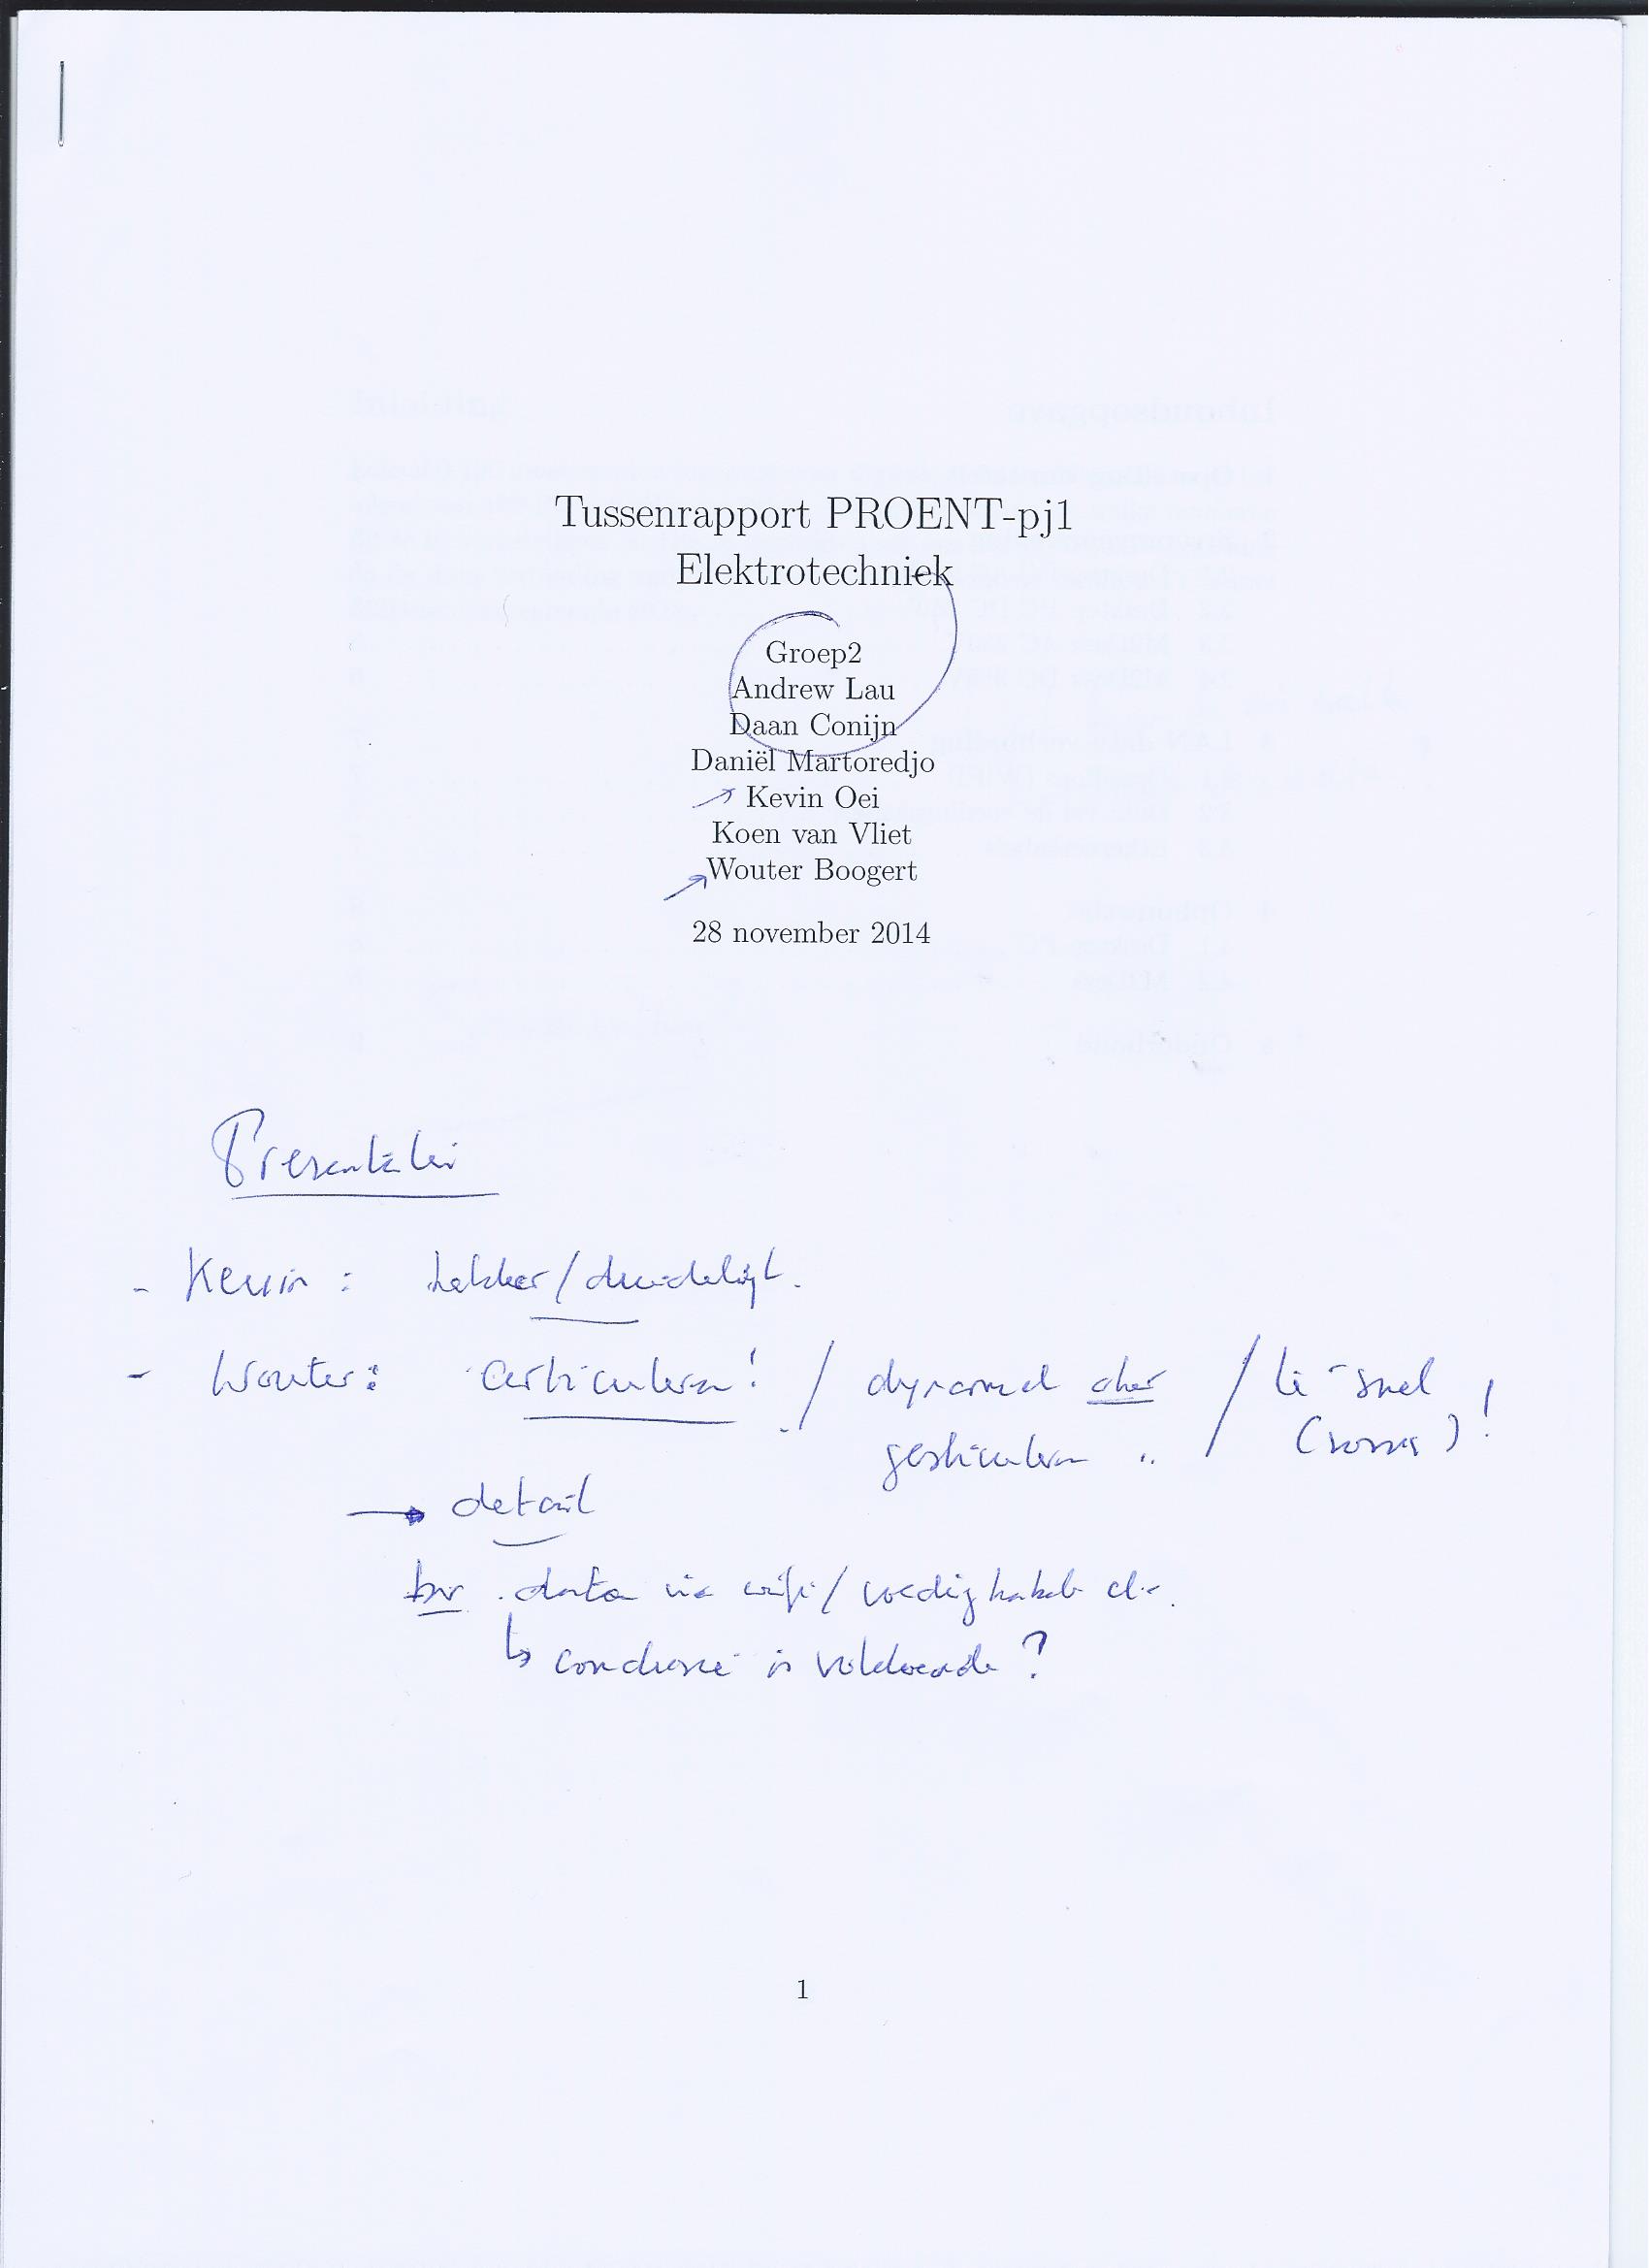 Tussenrapport PROENT-pj1
Elektrotechniek
Groep2
Andrew Lau
Daan Conijn
Daniël Martoredjo
Kevin Oei
Koen van Vliet
Wouter Boogert
28 november 2014
Presentatie
- Kevin : helder/duidelijk.
- Wouter: articuleren! / dynamiek / te snel
gesticuleren .. (soms)!
→ detail
bv . data via wifi/voedig kabel
↳ conclusie is voldoende ?
1